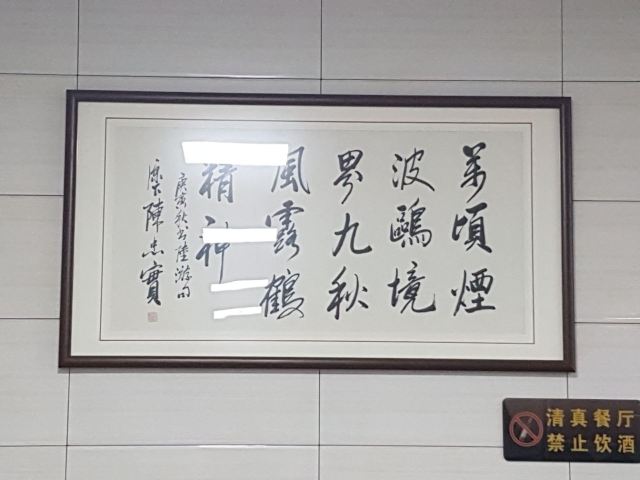 萬頃煙
波鷗境
界九秋
風露鶴
精神
庚寅秋书陸游句
原下陳忠實
清真餐厅
禁止饮酒